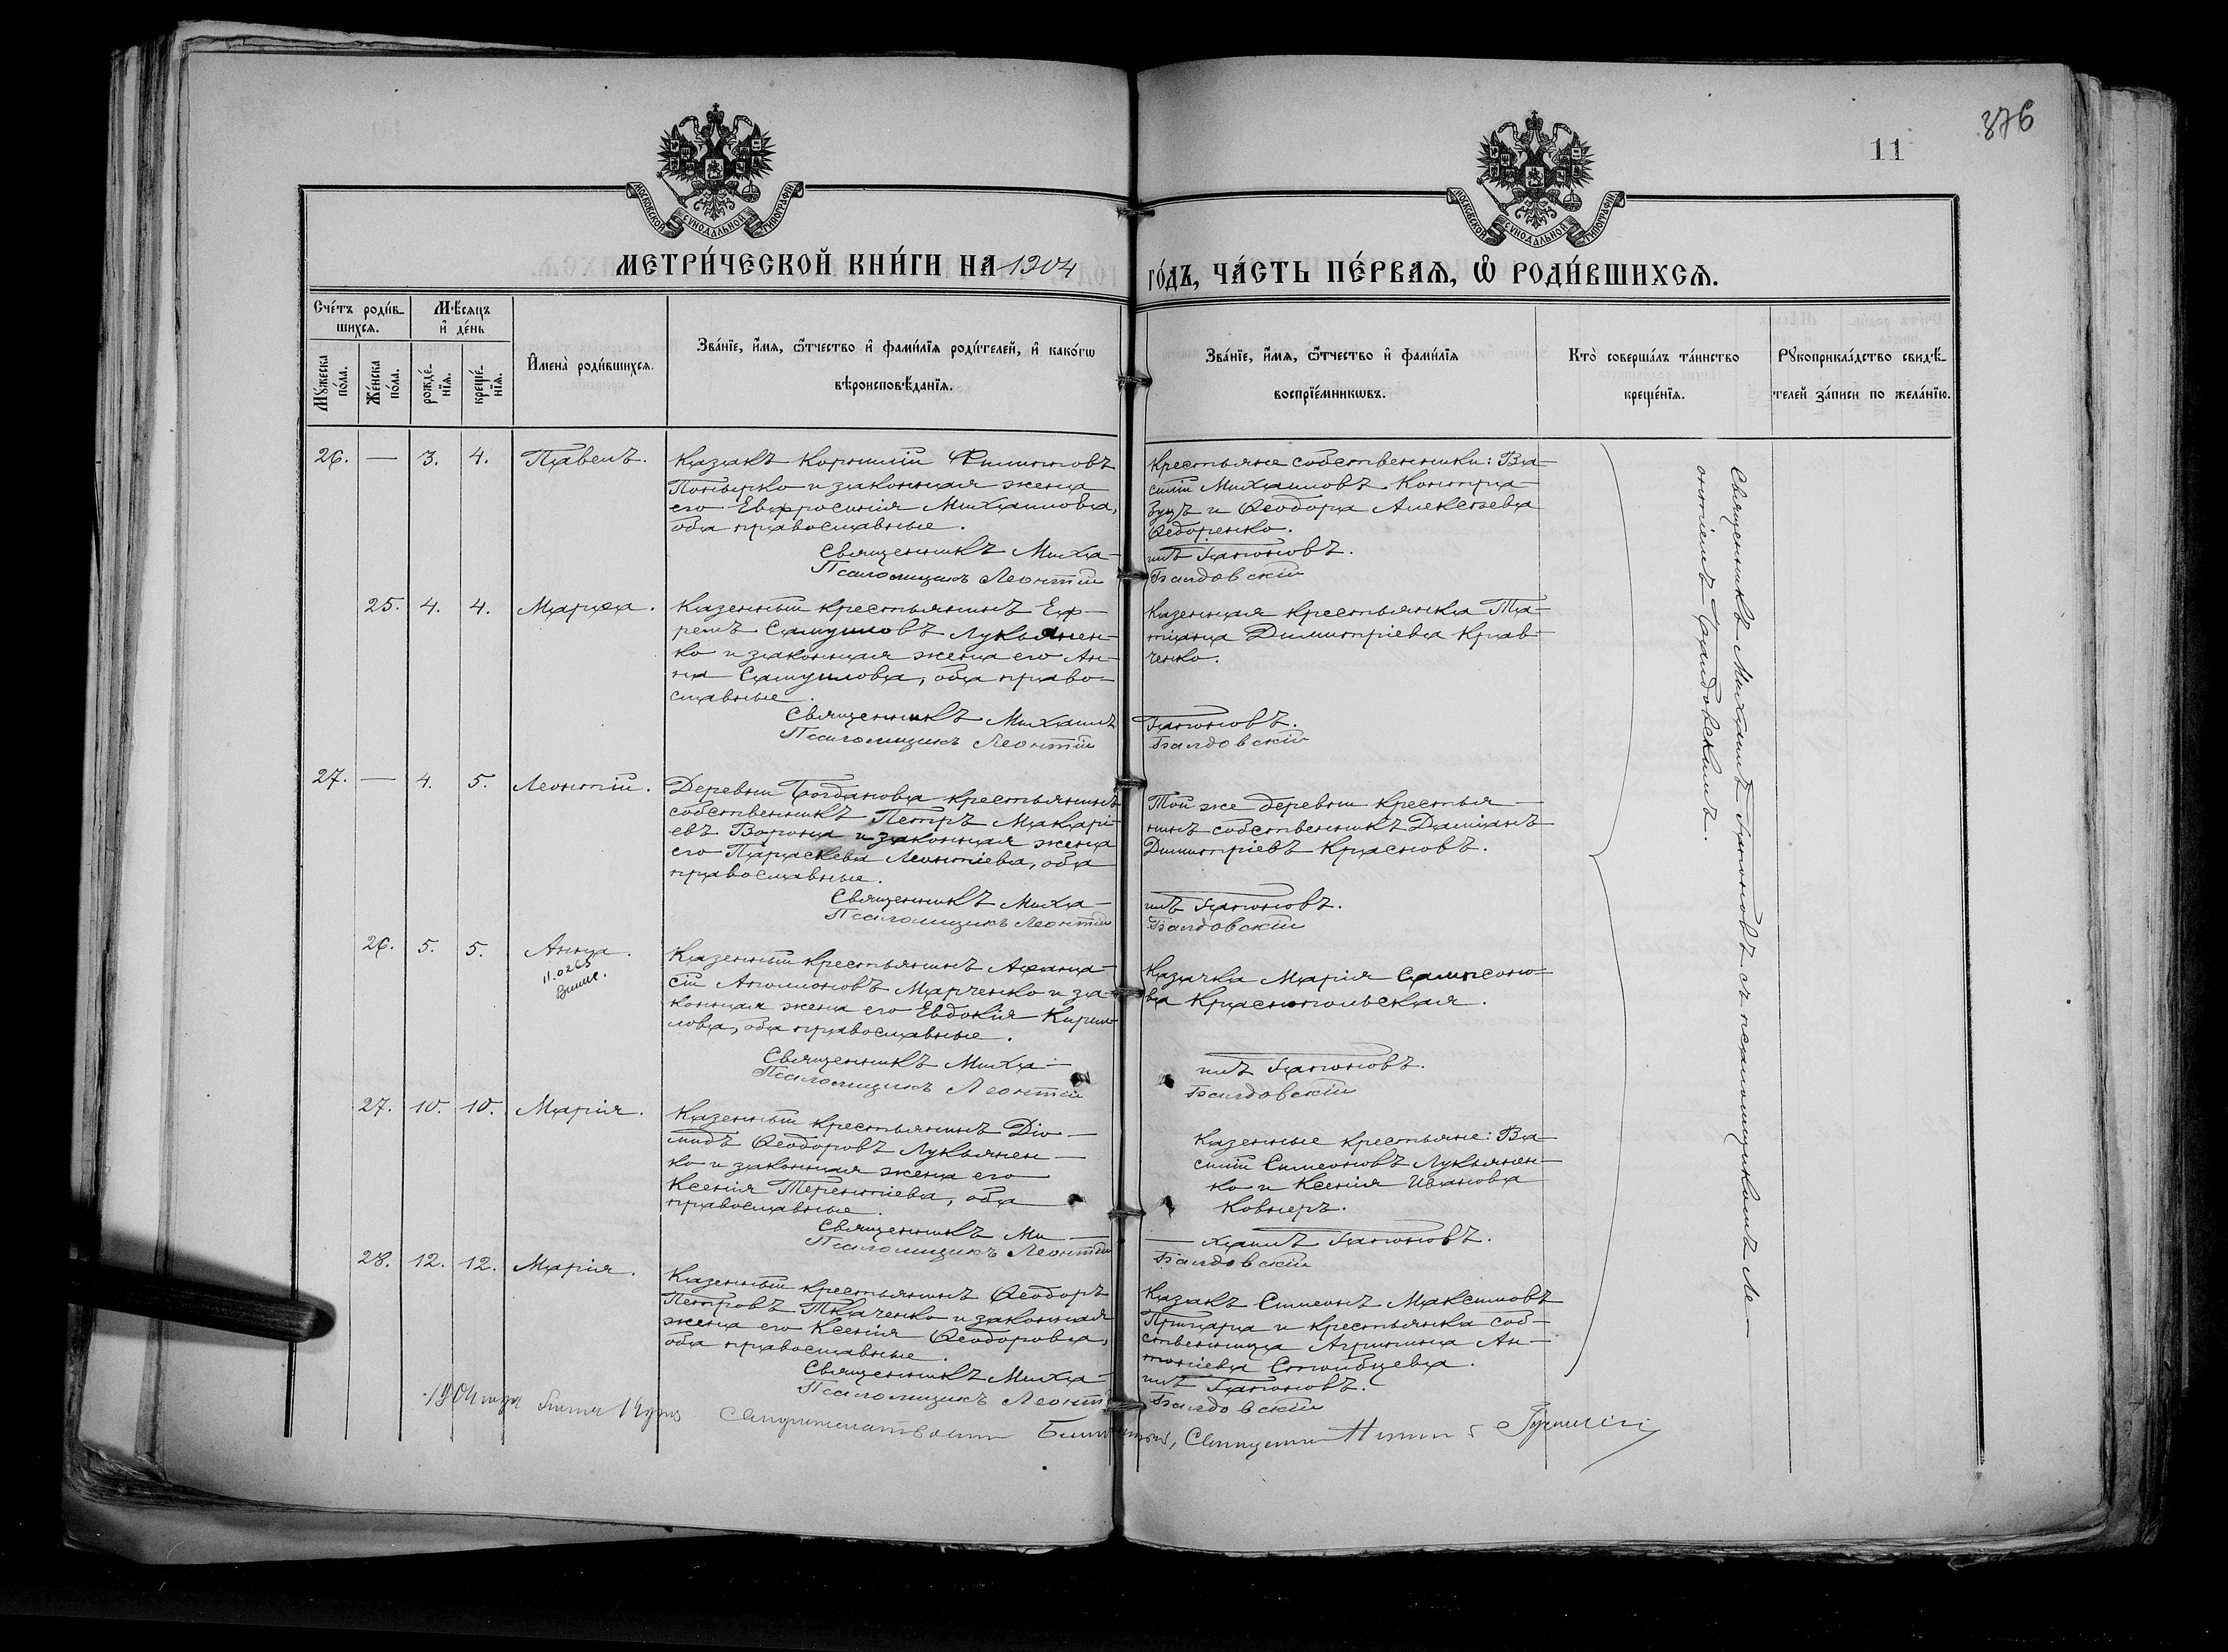 376
11
МОСКОВСКОЙ СУНОДАЛЬНОЙ ТИПОГРАФІИ
МОСКОВСКОЙ СУНОДАЛЬНОЙ ТИПОГРАФІИ
МЕТРИ́ЧЕСКОЙ КНИ́ГИ НА 1904
ГО́ДЪ, ЧА́СТЬ ПЕ́РВАѦ, Ѡ҆ РОДИ́ВШИХСѦ.
Сче́тъ роди́в-
шихсѧ.
Мѣ́сѧцъ
и҆ де́нь
Мꙋ́жеска
по́ла.
Же́нска
по́ла.
рожде́-
нїѧ.
креще́-
нїѧ.
И҆мена̀ роди́вшихсѧ.
Зва́нїе, и҆́мѧ, ѿтчество и҆ фами́лїѧ роди́телей, и҆ како́гѡ
вѣроисповѣ́данїѧ.
Зва́нїе, и҆́мѧ, ѿтчество и҆ фами́лїѧ
воспрїе́мникѡвъ.
Кто̀ соверша́лъ та́инство
креще́нїѧ.
Рꙋкоприкла́дство свидѣ́-
телей за́писи по жела́нїю.
26. — 3. 4. Павелъ.
Казакъ Корнилій Филиповъ
Пономарко и законная жена
его Евфросинія Михаилова,
оба православные.
Священникъ Миха-
Псаломщикъ Леонтій
Крестьяне собственники: Ва-
силій Михаиловъ Контра-
буцъ и Ѳеодора Алексѣева
Ѳедоренко.
илъ Гапоновъ.
Балдовскій
25. 4. 4. Марѳа.
Казенный крестьянинъ Еф-
ремъ Самуиловъ Лукьянен-
ко и законная жена его Ан-
на Самуилова, оба право-
славные.
Священникъ Михаилъ
Псаломщикъ Леонтій
Казенная крестьянка Та-
тіана Димитріева Крав-
ченко.
Гапоновъ.
Балдовскій
27. — 4. 5. Леонтій.
Деревни Богданова крестьянинъ
собственникъ Петръ Макарі-
евъ Ворона и законная жена
его Параскева Леонтіева, оба
православные.
Священникъ Миха-
Псаломщикъ Леонтій
Той же деревни крестья-
нинъ собственникъ Даміанъ
Димитріевъ Красновъ.
илъ Гапоновъ.
Балдовскій
26. 5. 5. Анна.
11.0265
Казенный крестьянинъ Аѳана-
сій Аполлоновъ Марченко и за-
конная жена его Евдокія Кирил-
лова, оба православные.
Священникъ Миха-
Псаломщикъ Леонтій
Казачка Марія Сампсоно-
ва Краснопольская.
илъ Гапоновъ.
Балдовскій
27. 10. 10. Марія.
Казенный крестьянинъ Діо-
мидъ Ѳеодоровъ Лукьянен-
ко и законная жена его
Ксенія Терентіева, оба
православные.
Священникъ Ми-
Псаломщикъ Леонтій
Казенные крестьяне: Ва-
силій Симеоновъ Лукьянен-
ко и Ксенія Иванова
Ковнеръ.
-хаилъ Гапоновъ.
Балдовскій
28. 12. 12. Марія.
Казенный крестьянинъ Ѳеодоръ
Петровъ Ткаченко и законная
жена его Ксенія Ѳеодорова,
оба православные.
Священникъ Миха-
Псаломщикъ Леонтій
Казакъ Симеонъ Максимовъ
Прицара и крестьянка соб-
ственница Агрипина Ан-
тоніева Столбцева.
илъ Гапоновъ.
Балдовскій
Священникъ Михаилъ Гапоновъ съ псаломщикомъ Ле-
онтіемъ Балдовскимъ.
1904 года